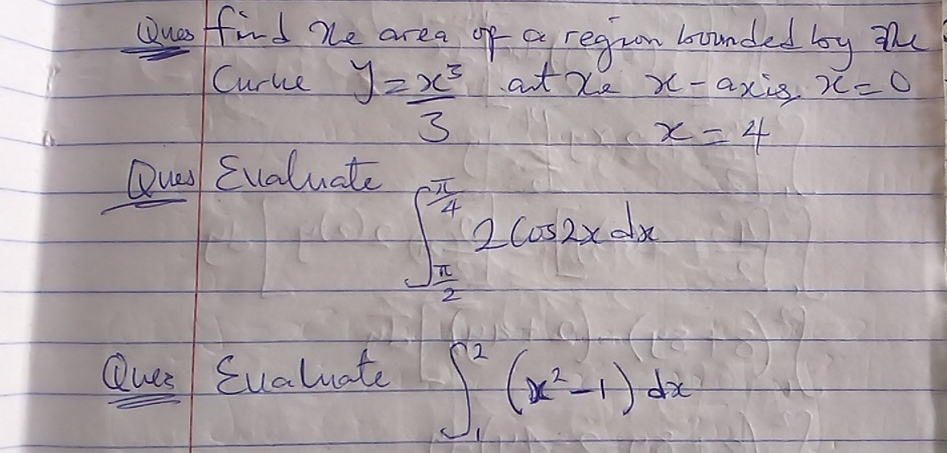 Ques find the area of a region bounded by the
Curve y = x³/3 at the x-axis, x = 0
x = 4
Ques Evaluate
∫_{π/2}^{π/4} 2 Cos2x dx
Ques Evaluate ∫_1^2 (x² - 1) dx